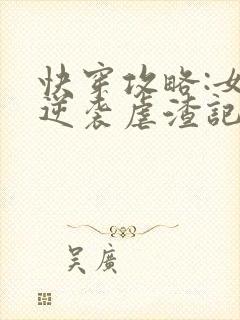 快穿攻略:女
逆袭虐渣記
吴廣